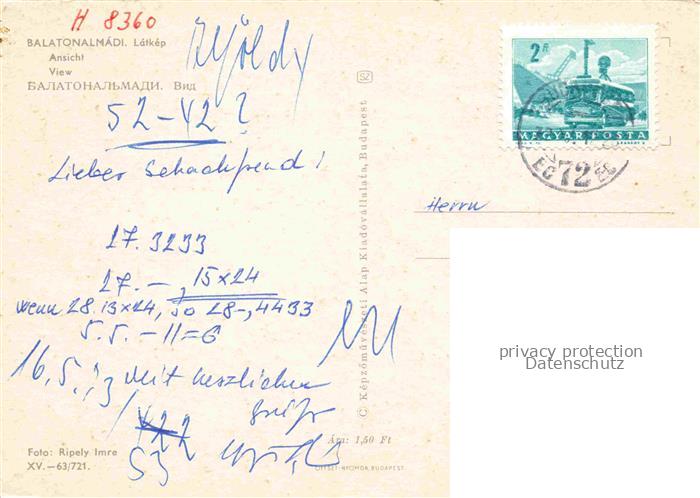 H 8360
BALATONALMÁDI. Látkép
Ansicht
View
БАЛАТОНАЛЬМАДИ. Вид
52-42?
Lieber Schachfreund!
27. 3233
27. - , 15x24
wenn 28. 13x24, so 28-, 4433
5.5. - 11=6
16.5., 3 mit herzlichen
422
53
Foto: Ripely Imre
XV.—63/721.
© Képzőművészeti Alap Kiadóvállalata, Budapest
Ára: 1,50 Ft
OFFSET-NYOMDA, BUDAPEST
SZ
2 Ft
MAGYAR POSTA
72
Herrn
privacy protection
Datenschutz